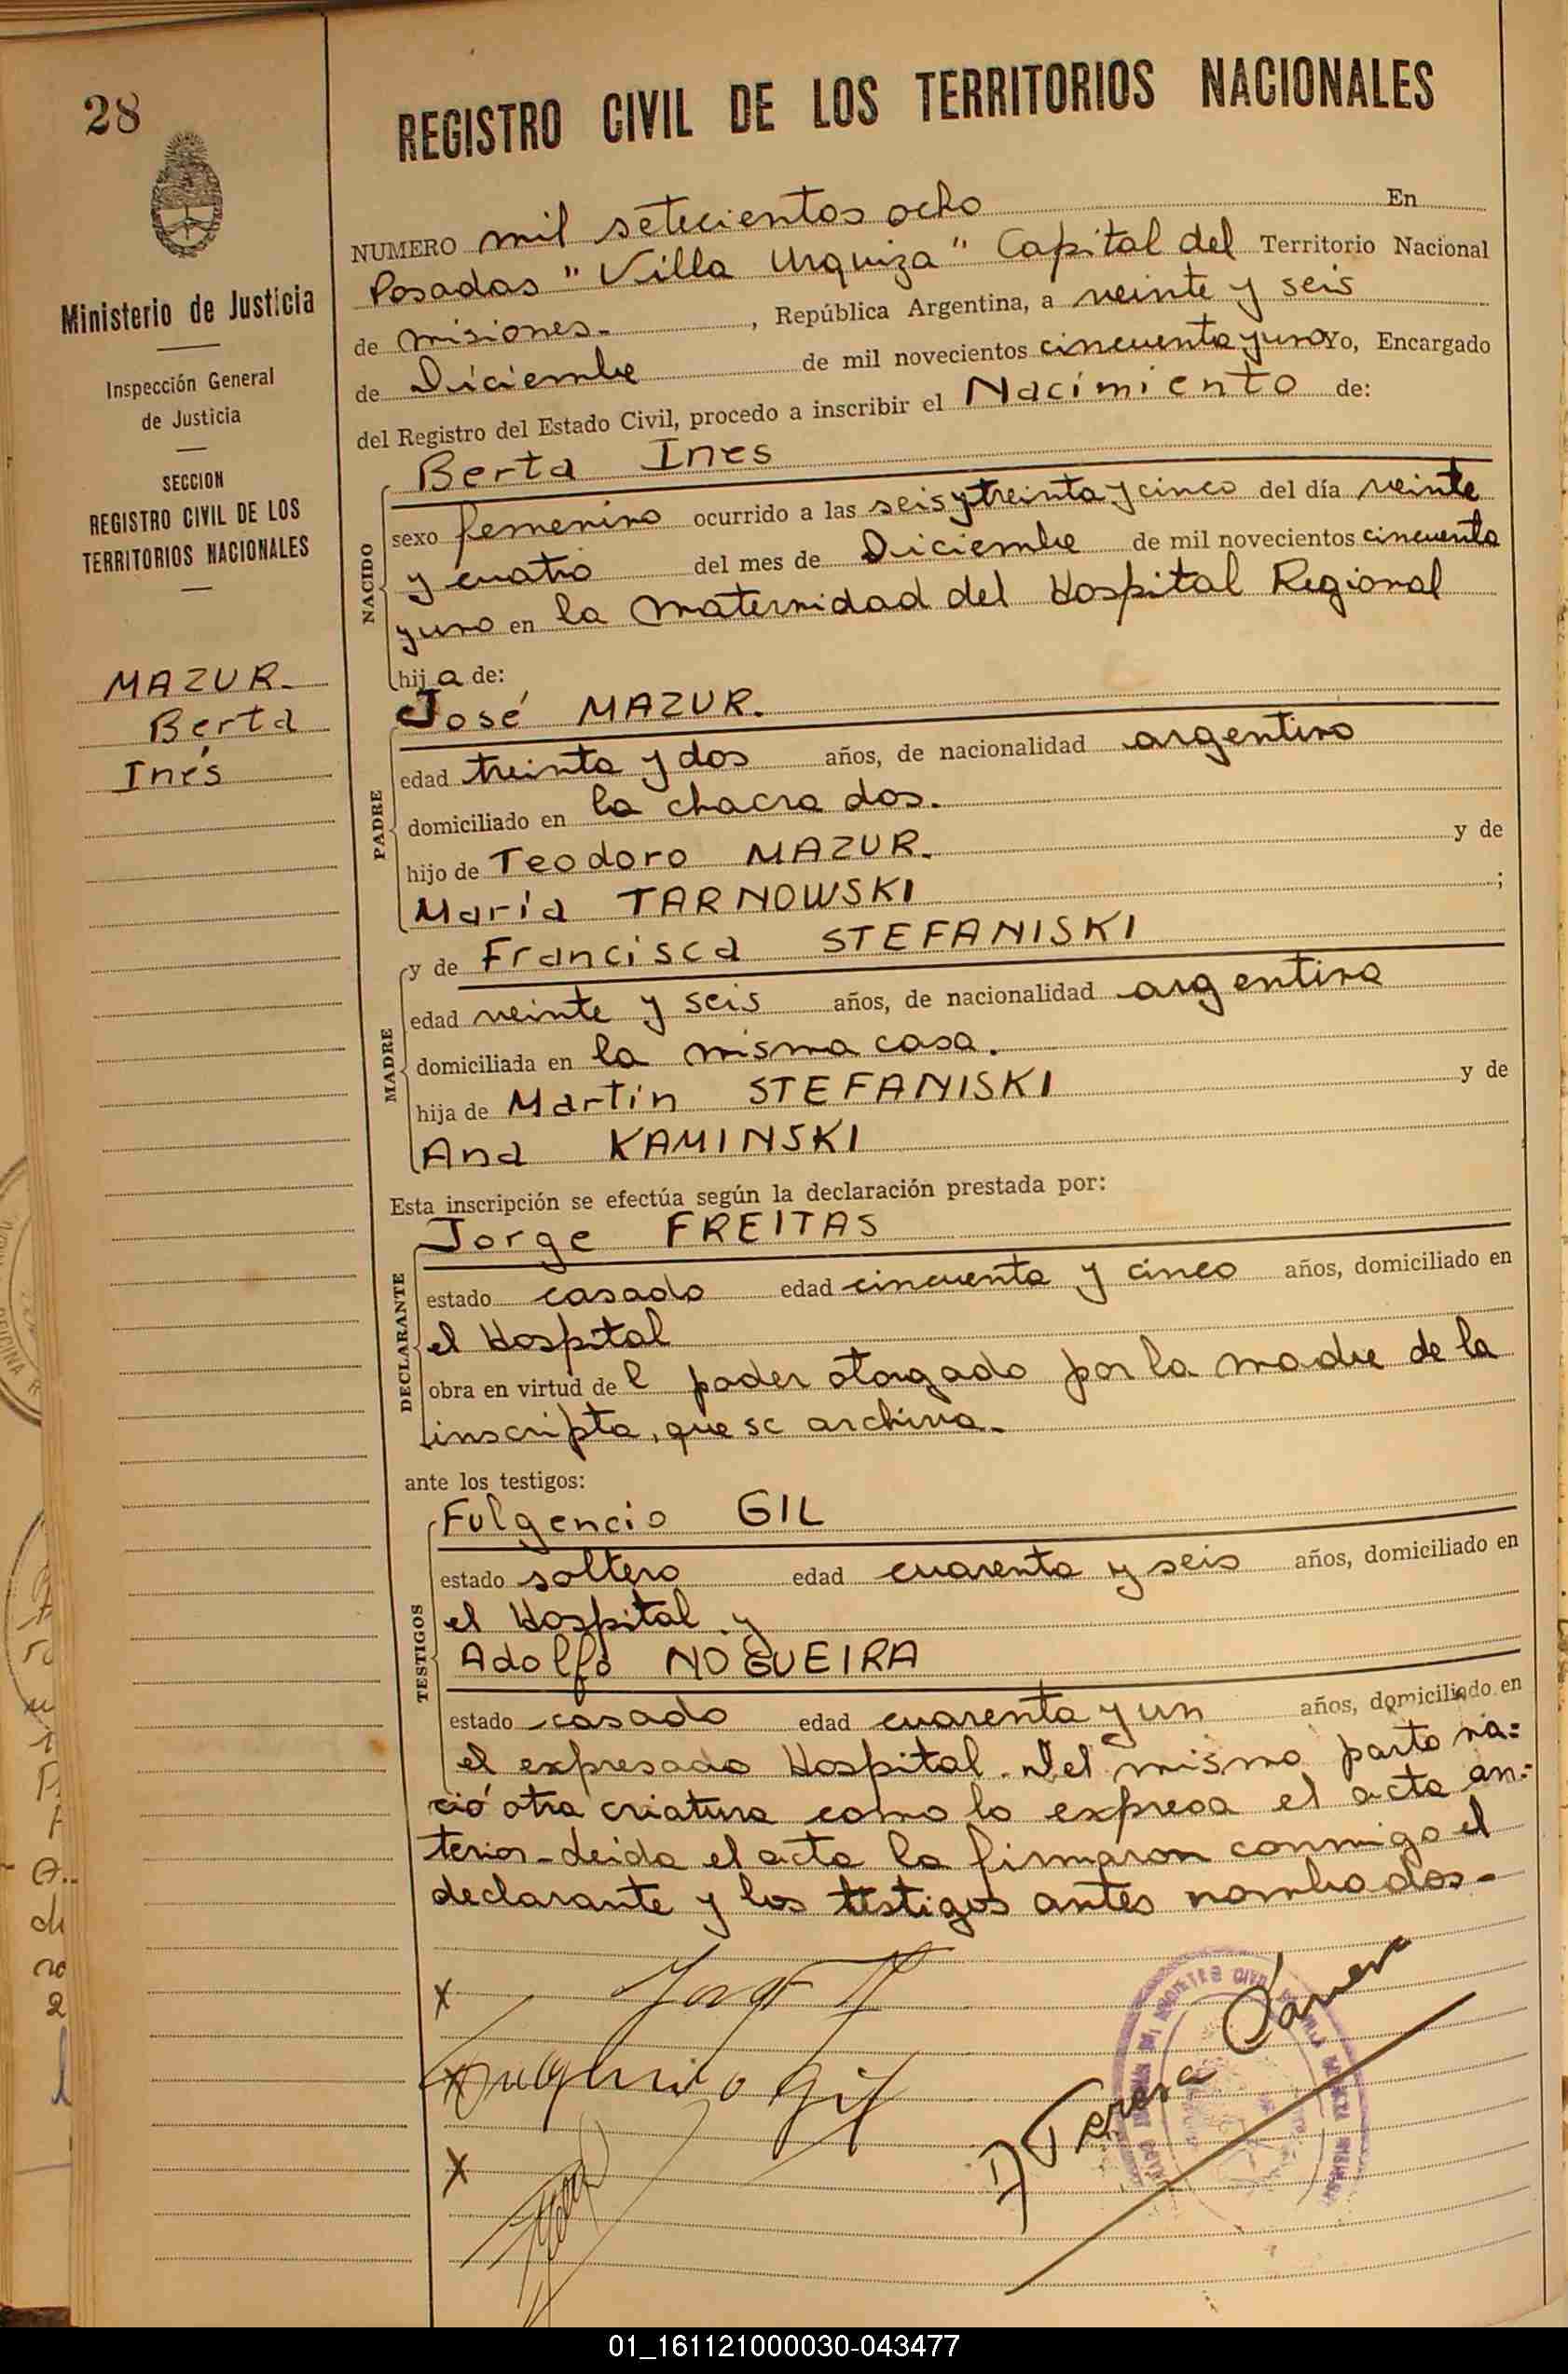 28
REGISTRO CIVIL DE LOS TERRITORIOS NACIONALES
Ministerio de Justicia
Inspección General
de Justicia
SECCION
REGISTRO CIVIL DE LOS
TERRITORIOS NACIONALES
MAZUR.
Berta
Inés
NUMERO mil setecientos ocho En
Posadas "Villa Urquiza" Capital del Territorio Nacional
de Misiones.- , República Argentina, a veinte y seis
de Diciembre de mil novecientos cincuenta y uno Yo, Encargado
del Registro del Estado Civil, procedo a inscribir el Nacimiento de:
Berta Ines
NACIDO
sexo femenino ocurrido a las seis y treinta y cinco del día veinte
y cuatro del mes de Diciembre de mil novecientos cincuenta
y uno en la Maternidad del Hospital Regional
hija de:
José MAZUR.
PADRE
edad treinta y dos años, de nacionalidad argentino
domiciliado en la chacra dos.
hijo de Teodoro MAZUR. y de
María TARNOWSKI ;
y de Francisca STEFANISKI
MADRE
edad veinte y seis años, de nacionalidad argentina
domiciliada en la misma casa.
hija de Martín STEFANISKI y de
Ana KAMINSKI
Esta inscripción se efectúa según la declaración prestada por:
Jorge FREITAS
DECLARANTE
estado casado edad cincuenta y cinco años, domiciliado en
el Hospital
obra en virtud del poder otorgado por la madre de la
inscripta, que se archiva.-
ante los testigos:
Fulgencio GIL
TESTIGOS
estado soltero edad cuarenta y seis años, domiciliado en
el Hospital y
Adolfo NOGUEIRA
estado casado edad cuarenta y un años, domiciliado en
el expresado Hospital. Del mismo parto na=
ció otra criatura como lo expresa el acta an=
terior-Leida el acta la firmaron conmigo el
declarante y los testigos antes nombrados.-
x Jorge
x Fulgencio Gil
x
Teresa
01_161121000030-043477